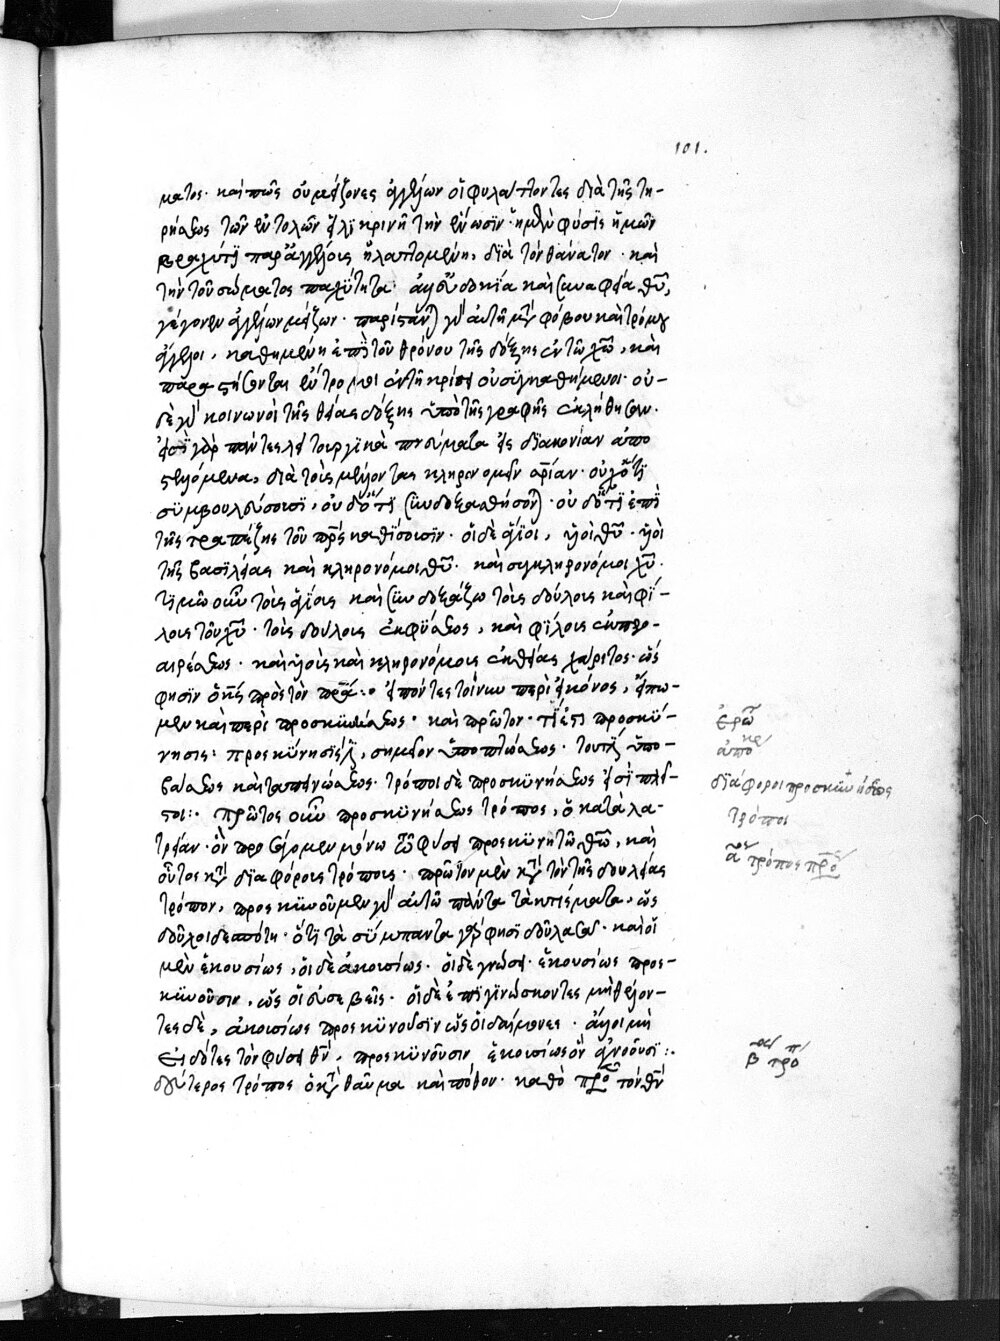 101.
ματος· καὶ πῶς οὐ μείζονες ἀγγέλων οἱ φυλάττοντες διὰ τῆς τη-
ρήσεως τῶν ἐντολῶν εἰλικρινῆ τὴν ἕνωσιν· ἡ μὲν φύσις ἡμῶν
βραχύτι παρ' ἀγγέλοις ἠλαττωμένη, διὰ τὸν θάνατον· καὶ
τὴν τοῦ σώματος παχύτητα· ἀλλ' εὐδοκία καὶ συναφεία θυ̅,
γέγονεν ἀγγέλων μείζων· παρίστανται γὰρ αὐτῆ μετὰ φόβου καὶ τρόμου
ἄγγελοι, καθημένη ἐπὶ τοῦ θρόνου τῆς δόξης ἐν τῶ χω̅, καὶ
παραστήσονται ἔντρομοι ἐν τῆ κρίσει οὐ συγκαθήμενοι· οὐ-
δὲ γὰρ κοινωνοὶ τῆς θείας δόξης ὑπὸ τῆς γραφῆς ἐκλήθησαν·
εἰσὶ γὰρ πάντες λειτουργικὰ πνεύματα εἰς διακονίαν ἀπο
στελλόμενα, διὰ τοὺς μέλλοντας κληρονομεῖν σρίαν· οὐχ ὅτι
συμβουλεύσουσι, οὐδ' ὅτι συνδοξασθήσονται· οὐδ' ὅτι ἐπὶ
τῆς τραπέζης τοῦ πρς καθίσουσιν· οἱ δὲ ἅγιοι, υἱοὶ θυ̅· υἱοὶ
τῆς βασιλείας καὶ κληρονόμοι θυ̅· καὶ συγκληρονόμοι χυ̅·
τιμῶ οὖν τοὺς ἁγίους καὶ συνδοξάζω τοὺς δούλους καὶ φί-
λους τοῦ χυ̅· τοὺς δούλους ἐκ φύσεως, καὶ φίλους ἐκ προ-
αιρέσεως· καὶ υἱοὺς καὶ κληρονόμους ἐκ θείας χάριτος· ὥς
φησιν ὁ κς πρὸς τὸν πρα· εἰπόντες τοίνυν περὶ εἰκόνος, εἴπω-
μεν καὶ περὶ προσκυνήσεως· καὶ πρῶτον· τί ἐστι προσκύ-
νησις: προσκύνησίς ἐστι, σημεῖον ὑποπτώσεως· τουτέστιν ὑπο-
βάσεως καὶ ταπεινώσεως· τρόποι δὲ προσκυνήσεως εἰσὶ πλεῖ-
στοι:· πρῶτος οὖν προσκυνήσεως τρόπος, ὁ κατὰ λα-
τρείαν· ὃν προσάγομεν μόνω τῶ φύσει προσκυνητῶ θω̅, καὶ
οὗτος κατὰ διαφόρους τρόπους· πρῶτον μὲν κατὰ τὸν τῆς δουλείας
τρόπον, προσκυνοῦμεν γὰρ αὐτῶ πάντα τὰ κτίσματα, ὡς
δοῦλοι δεσπότη· ὅτι τὰ σύμπαντα γάρ φησι δοῦλα σά· καὶ οἱ
μὲν ἑκουσίως, οἱ δὲ ἀκουσίως· οἱ δὲ γνώσει· ἑκουσίως προσ-
κυνοῦσιν, ὡς οἱ εὐσεβεῖς· οἱ δὲ ἐπιγινώσκοντες μὴ θέλον-
τες δὲ, ἀκουσίως προσκυνοῦσιν ὡς οἱ δαίμονες· ἄλλοι μὴ
εἰδότες τὸν φύσει θν̅, προσκυνοῦσιν ἀκουσίως ὃν ἀγνοοῦσι:·
δεύτερος τρόπος ὁ κατὰ θαῦμα καὶ πόθον· καθὸ προσκυνοῦμεν τὸν θν̅
ἐρώ
ἀπόκρι
διάφοροι προσκυνήσεως
τρόποι
α τρόπος προ
β τρο